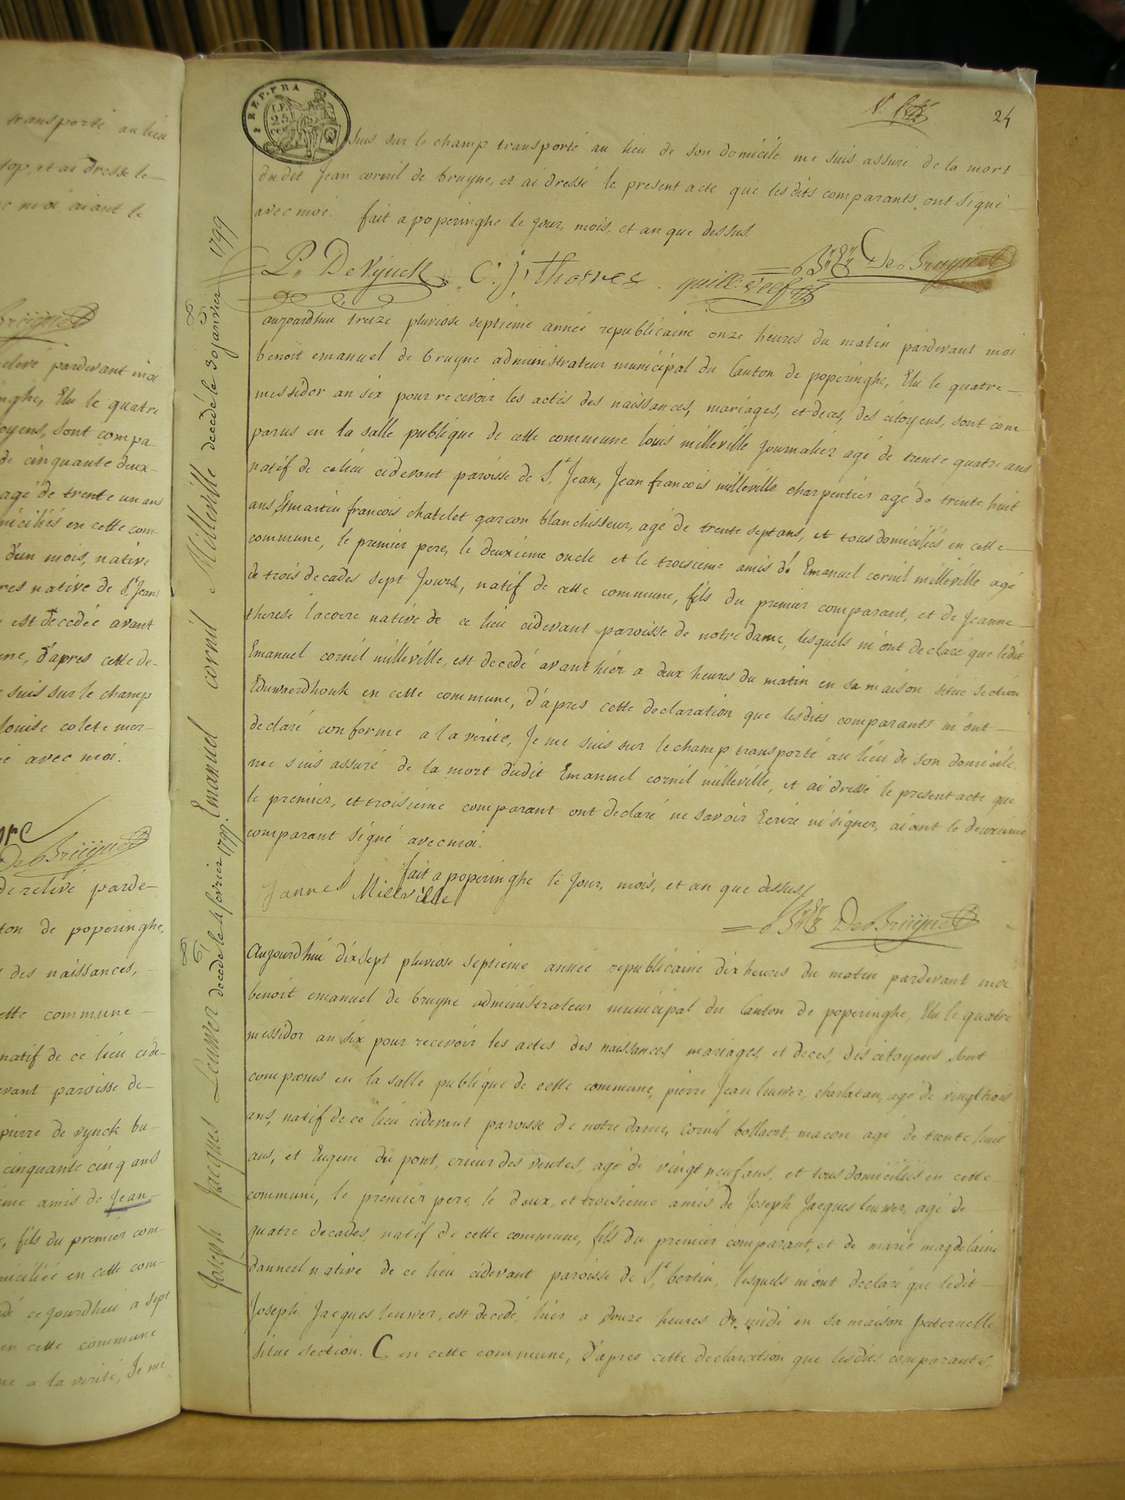 transporté au lieu
top, et ai dressé le
moi aiant le
relivé pardevant moi
inghe, Elu le quatre
toyens, sont compa-
de cinquante deux
agé de trente un ans
miciliés en cette com
d'un mois, native
native de St Jean
est decedée avant
d'apres cette de-
suis sur le champ
louise colete mer-
avec moi.
De Bruyne
relivé parde-
ton de poperinghe,
des naissances,
cette commune
natif de ce lieu cide-
vant paroisse de
pierre de vynck
cinquante cinq ans
amis de Jean
fils du premier com
miciliée en cette com
ce jourdhui a sept
en cette commune
a la verité, Je me
REP. FRA
24
suis sur le champ transporté au lieu de son domicile me suis assuré de la mort
dudit Jean cornil de bruyne, et ai dressé le present acte que lesdits comparants ont signé
avec moi. fait a poperinghe le jour, mois, et an que dessus
P. De Vynck C. J. Thorres De Bruyne
Emanuel cornil Milleville decedé le 30 janvier 1799
aujourdhui treize pluviose septieme année republicaine onze heures du matin pardevant moi
benoit emanuel de bruyne administrateur municipal du Canton de poperinghe, Elu le quatre
messidor an six pour recevoir les actes des naissances, mariages, et deces, des citoyens, sont com
parus en la salle publique de cette commune louis milleville journalier agé de trente quatre ans
natif de ce lieu cidevant paroisse de St Jean, Jean francois milleville charpentier agé de trente huit
ans Et martin francois chatelet garcon blanchisseur, agé de trente sept ans, et tous domiciliés en cette
commune, le premier pere, le deuxieme oncle et le troisieme amis de Emanuel cornil milleville agé
de trois decades sept Jours, natif de cette commune, fils du premier comparant, et de Jeanne
therese lacoere native de ce lieu cidevant paroisse de notre dame, lesquels m'ont declaré que ledit
Emanuel cornil milleville, est decedé avant hier a deux heures du matin en sa maison situe section
Eduwaerdhouk en cette commune, d'apres cette declaration que lesdits comparants m'ont
declaré conforme a la verité, Je me suis sur le champ transporté au lieu de son domicile
me suis assuré de la mort dudit Emanuel cornil milleville, et ai dressé le present acte que
le premier, et troisieme comparant ont declaré ne savoir Ecrire ni signer, aiant le deuxieme
comparant signé avec moi.
fait a poperinghe le Jour, mois, et an que dessus
Milleville
De Bruyne
Joseph Jacques Leuwer decedé le 4 fevrier 1799.
Aujourdhui dixsept pluviose septieme année republicaine dix heures du matin pardevant moi
benoit emanuel de bruyne administrateur municipal du Canton de poperinghe, Elu le quatre
messidor an six pour recevoir les actes des naissances mariages, et deces, des citoyens sont
comparus en la salle publique de cette commune, pierre Jean leuwer, charlatan, agé de vingt trois
ans, natif de ce lieu cidevant paroisse de notre dame, cornil bollaert, macon agé de trente huit
ans, et Eugene du pont, crieur des ventes, agé de vingt neuf ans, et tous domiciliés en cette
commune, le premier pere, le deux, et troisieme amis de Joseph Jacques leuwer, agé de
quatre decades, natif de cette commune, fils du premier comparant, et de marie magdelaine
danneel native de ce lieu cidevant paroisse de St bertin, lesquels m'ont declaré que ledit
Joseph Jacques leuwer, est decedé, hier a douze heures de midi en sa maison paternelle
située section. C en cette commune, d'apres cette declaration que lesdits comparants,